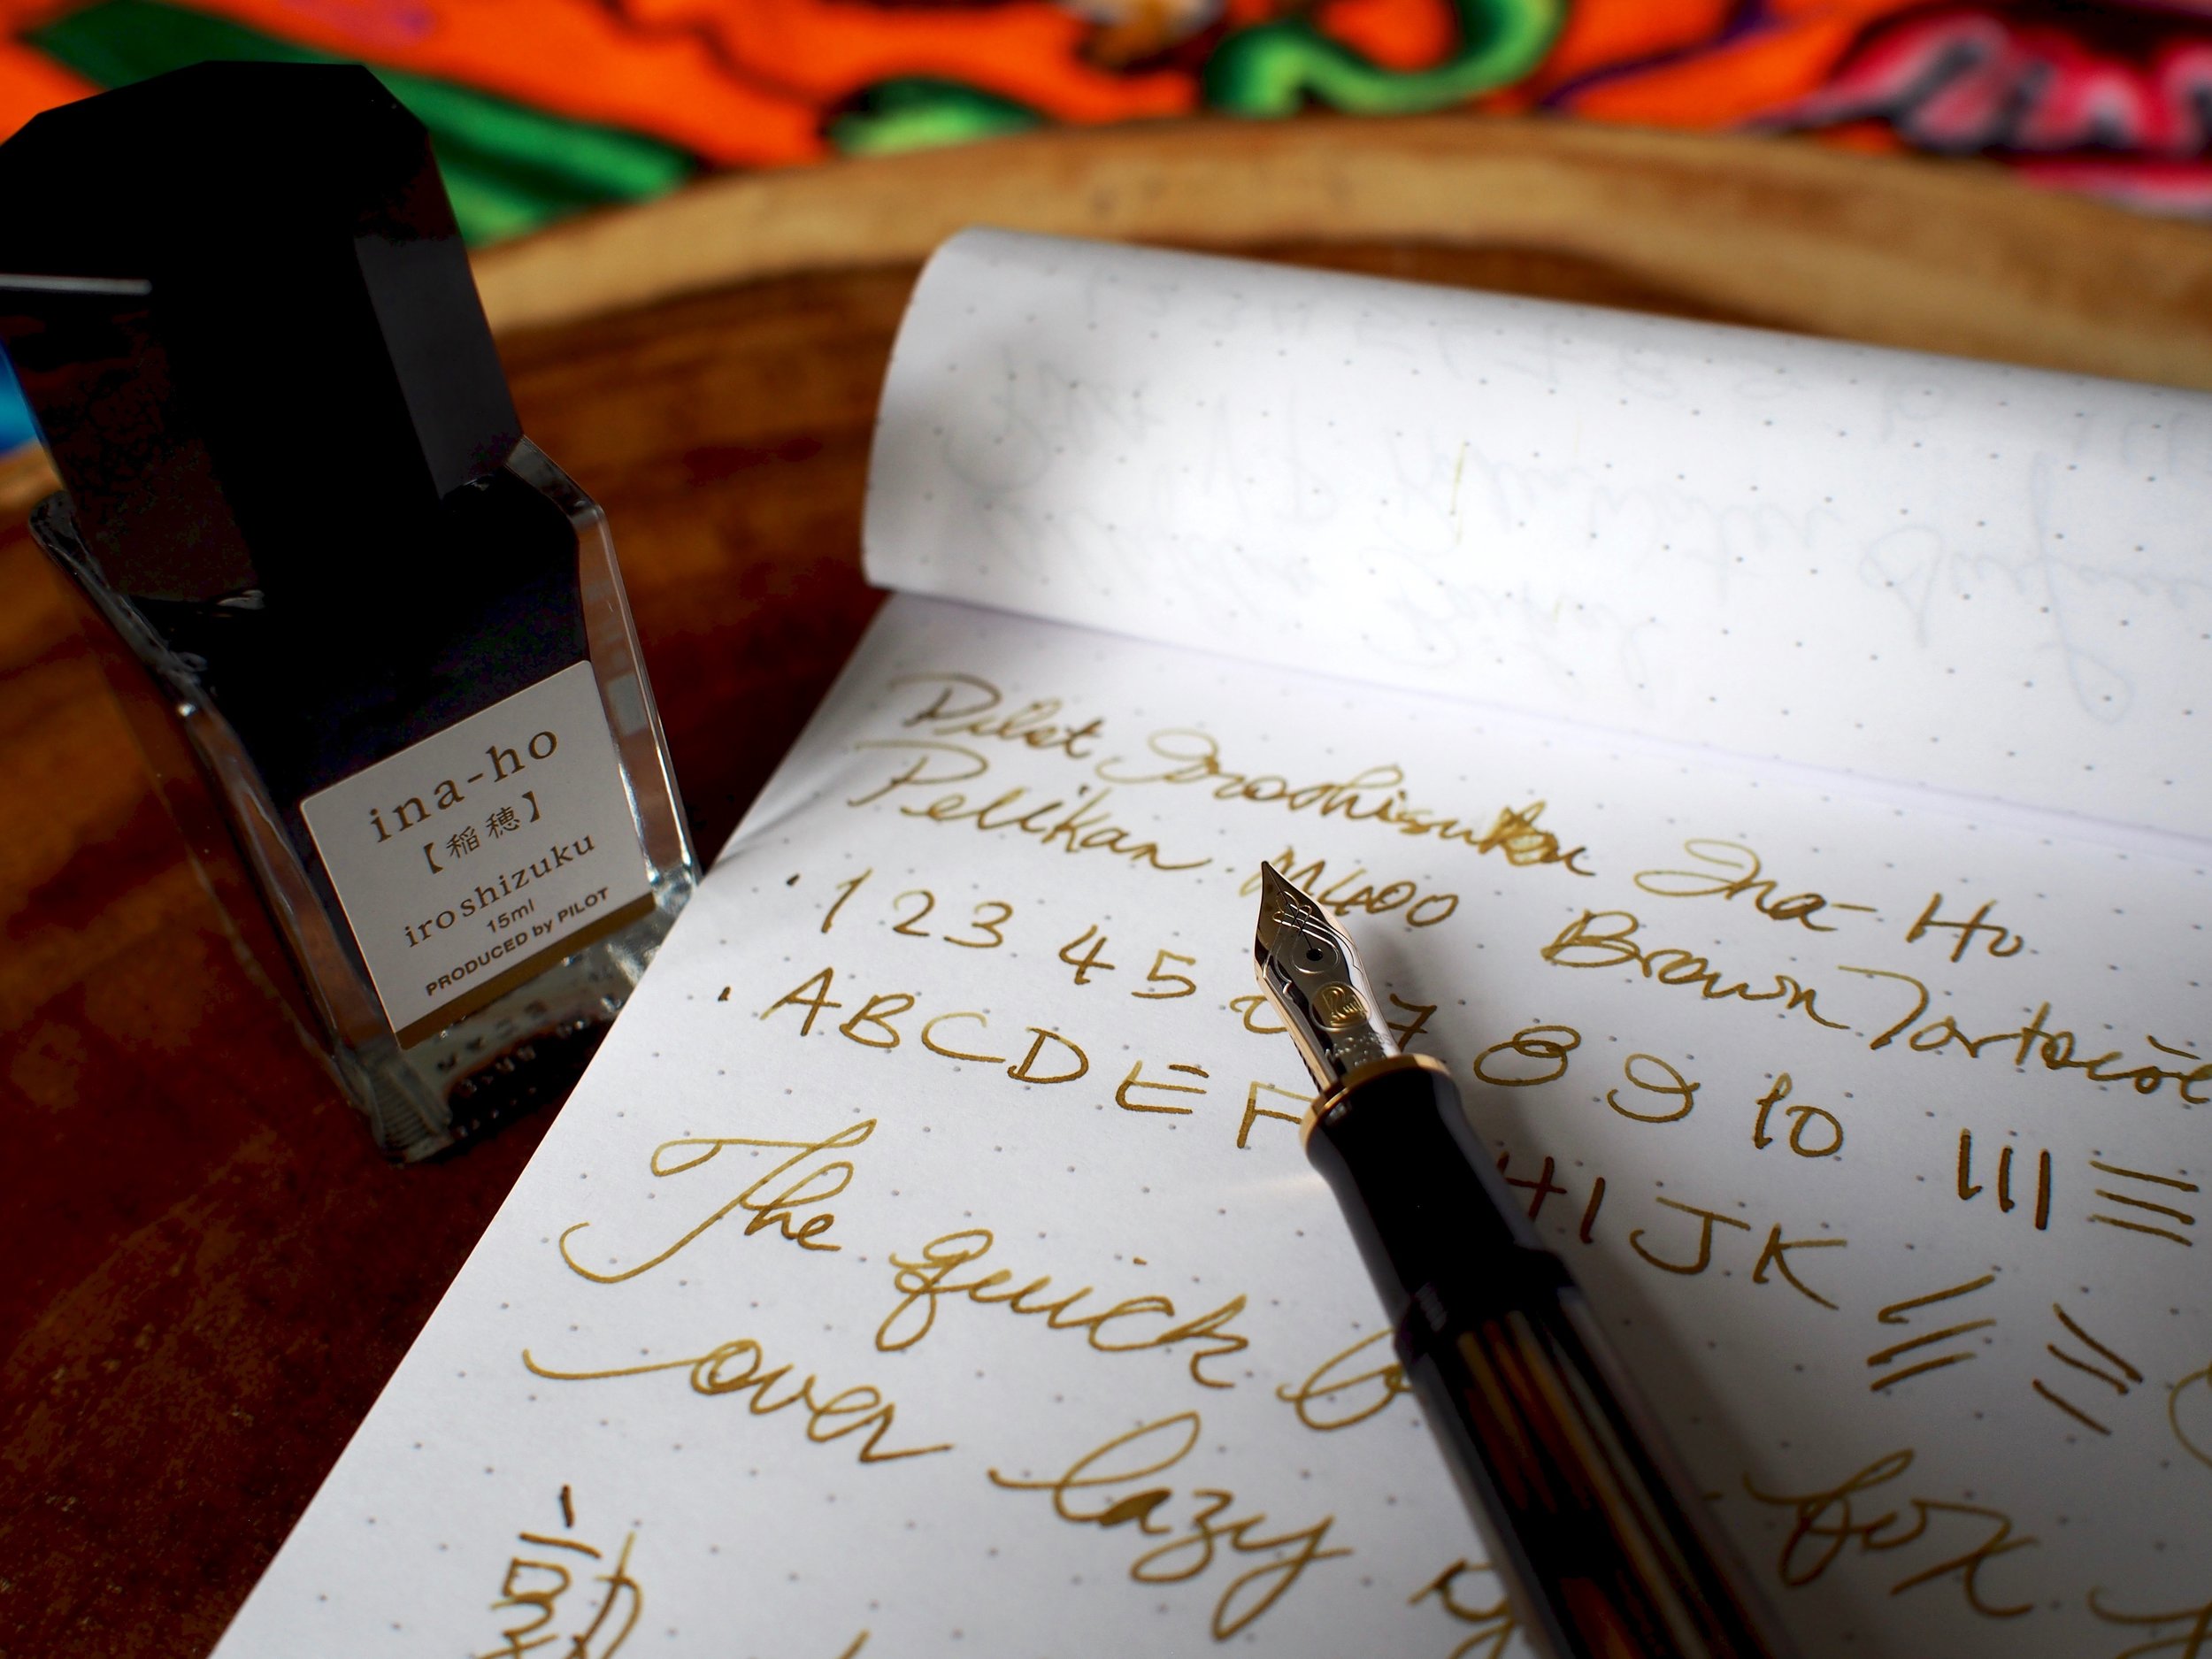 ina-ho
【稲穂】
iroshizuku
15ml
PRODUCED by PILOT
Pilot Iroshizuku Ina-Ho
Pelikan M400 Brown Tortoise
1 2 3 4 5 6 7 8 9 10
A B C D E F H I J K
The quick fox
over lazy